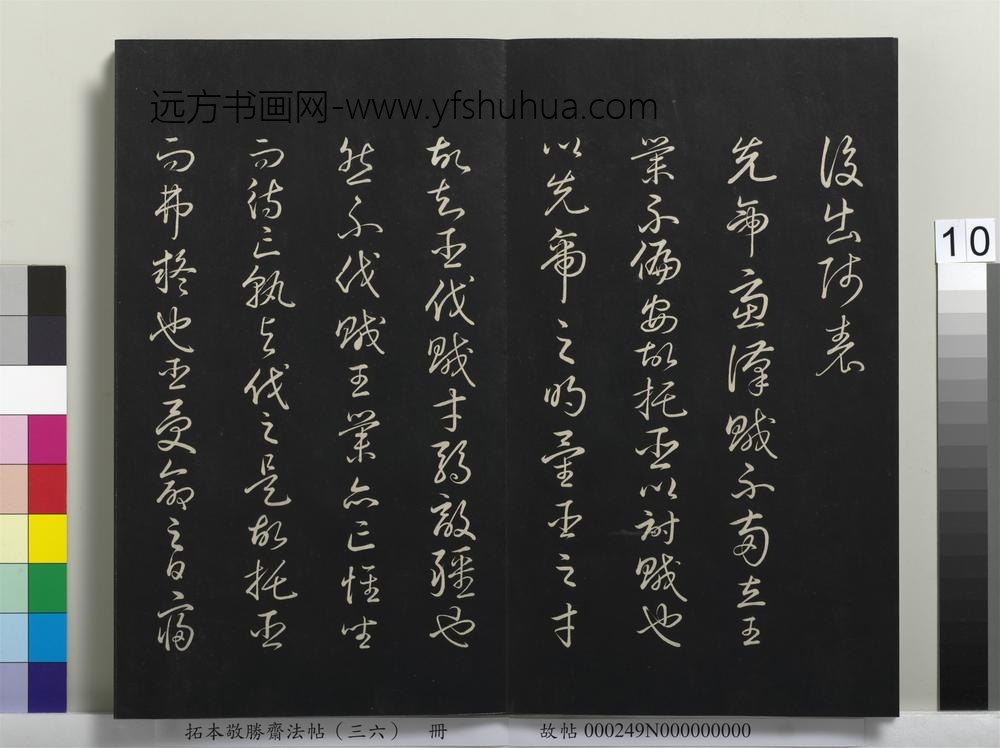 远方书画网-www.yfshuhua.com
後出師表
先帝慮漢賊不兩立王
業不偏安故托臣以討賊也
以先帝之明量臣之才
故知臣伐賊才弱敵彊也
然不伐賊王業亦亡惟坐
而待亡孰與伐之是故托臣
而弗疑也臣受命之日寢
10
拓本敬勝齋法帖（三六） 冊
故帖 000249N000000000